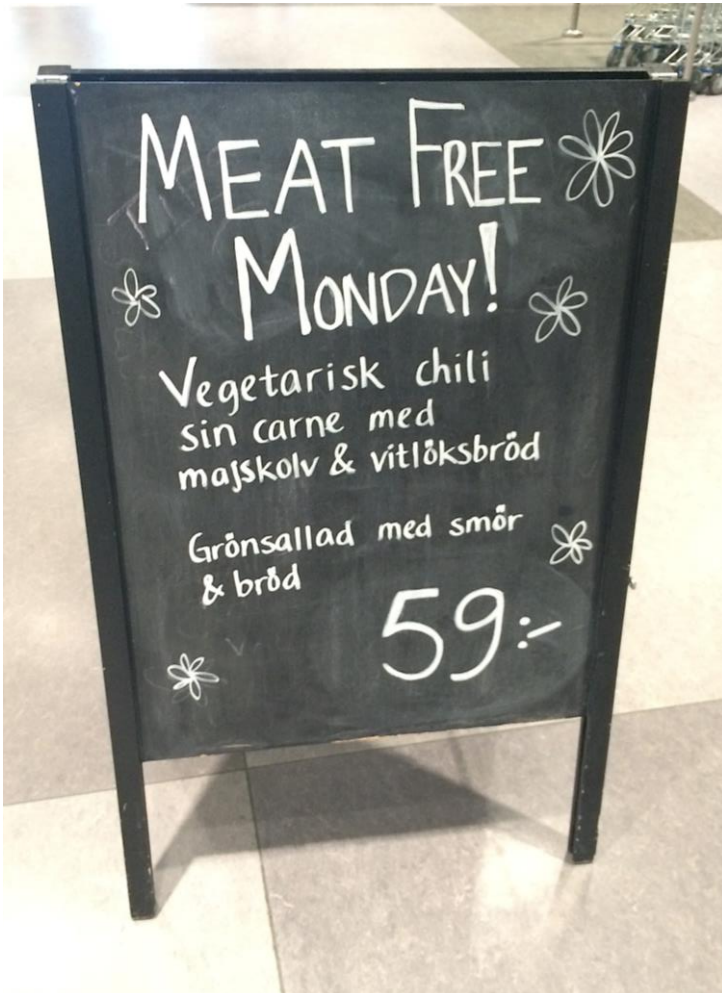 MEAT FREE
MONDAY!
Vegetarisk chili
sin carne med
majskolv & vitlöksbröd
Grönsallad med smör
& bröd
59:-